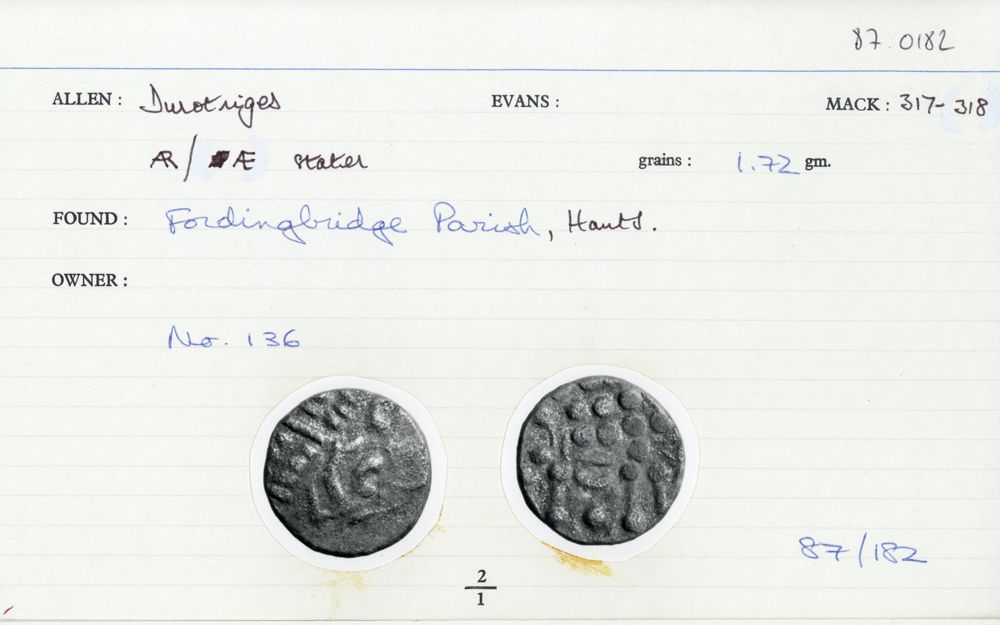 87.0182
ALLEN : Durotriges EVANS : MACK : 317-318
AR/ Æ stater grains : 1.72 gm.
FOUND : Fordingbridge Parish, Hants.
OWNER :
No. 136
87/182
2
1